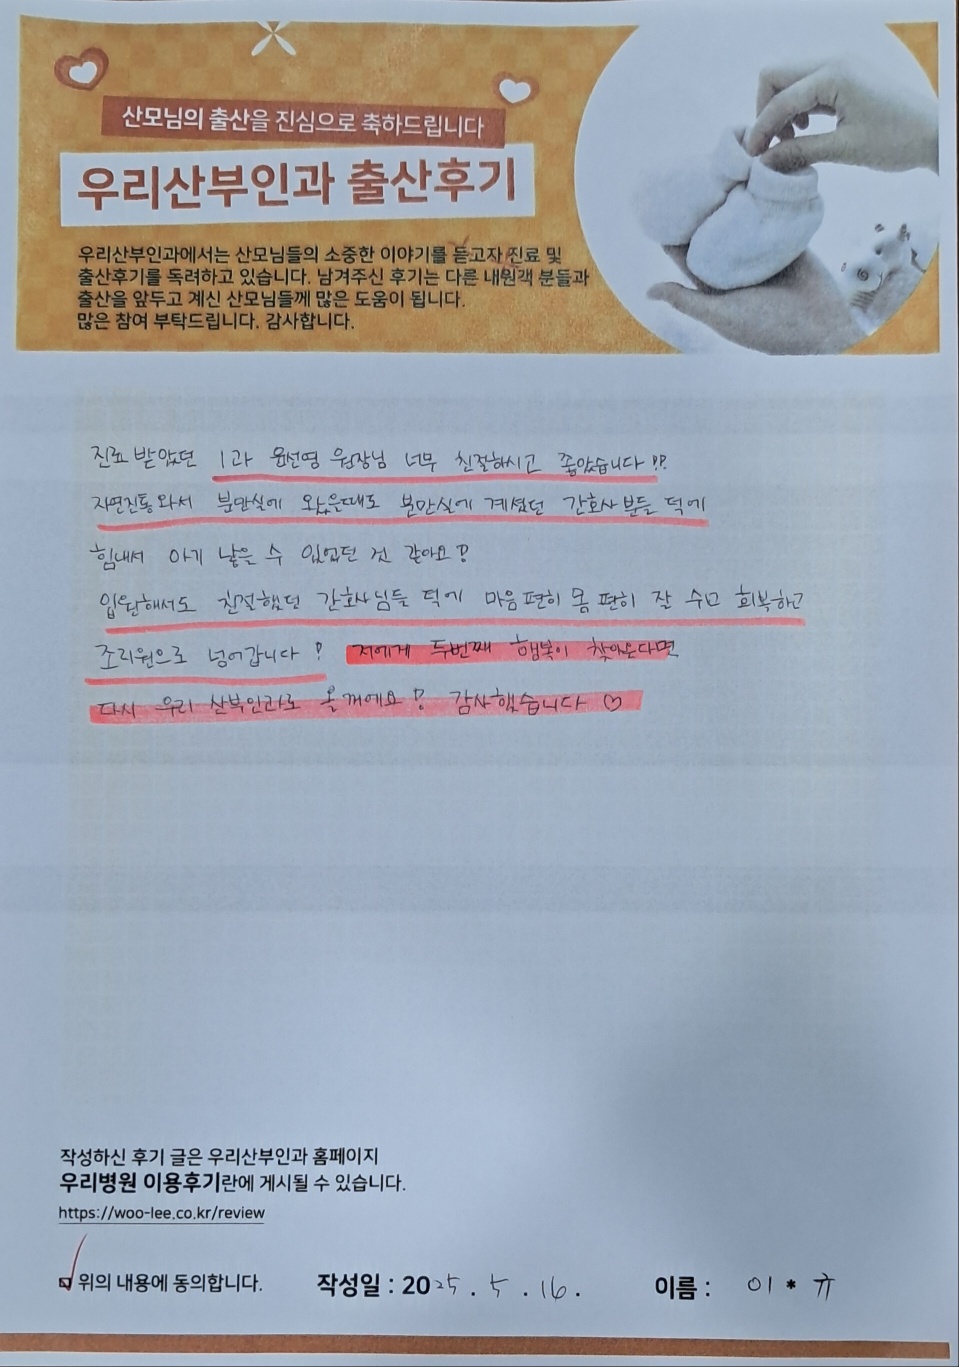 산모님의 출산을 진심으로 축하드립니다
우리산부인과 출산후기
우리산부인과에서는 산모님들의 소중한 이야기를 듣고자 진료 및
출산후기를 독려하고 있습니다. 남겨주신 후기는 다른 내원객 분들과
출산을 앞두고 계신 산모님들께 많은 도움이 됩니다.
많은 참여 부탁드립니다. 감사합니다.
진료 받았던 1과 윤선영 원장님 너무 친절하시고 좋았습니다!!
자연진통와서 분만실에 왔을때도 분만실에 계셨던 간호사분들 덕에
힘내서 아기 낳을 수 있었던 건 같아요!
입원해서도 친절했던 간호사님들 덕에 마음 편히 몸 편히 잘 쉬고 회복하고
조리원으로 넘어갑니다! 저에게 두번째 행복이 찾아온다면
다시 우리 산부인과로 올꺼에요! 감사했습니다 ♡
작성하신 후기 글은 우리산부인과 홈페이지
우리병원 이용후기란에 게시될 수 있습니다.
https://woo-lee.co.kr/review
위의 내용에 동의합니다. 작성일 : 2025 . 5 . 16 . 이름 : 이 * ㅠ